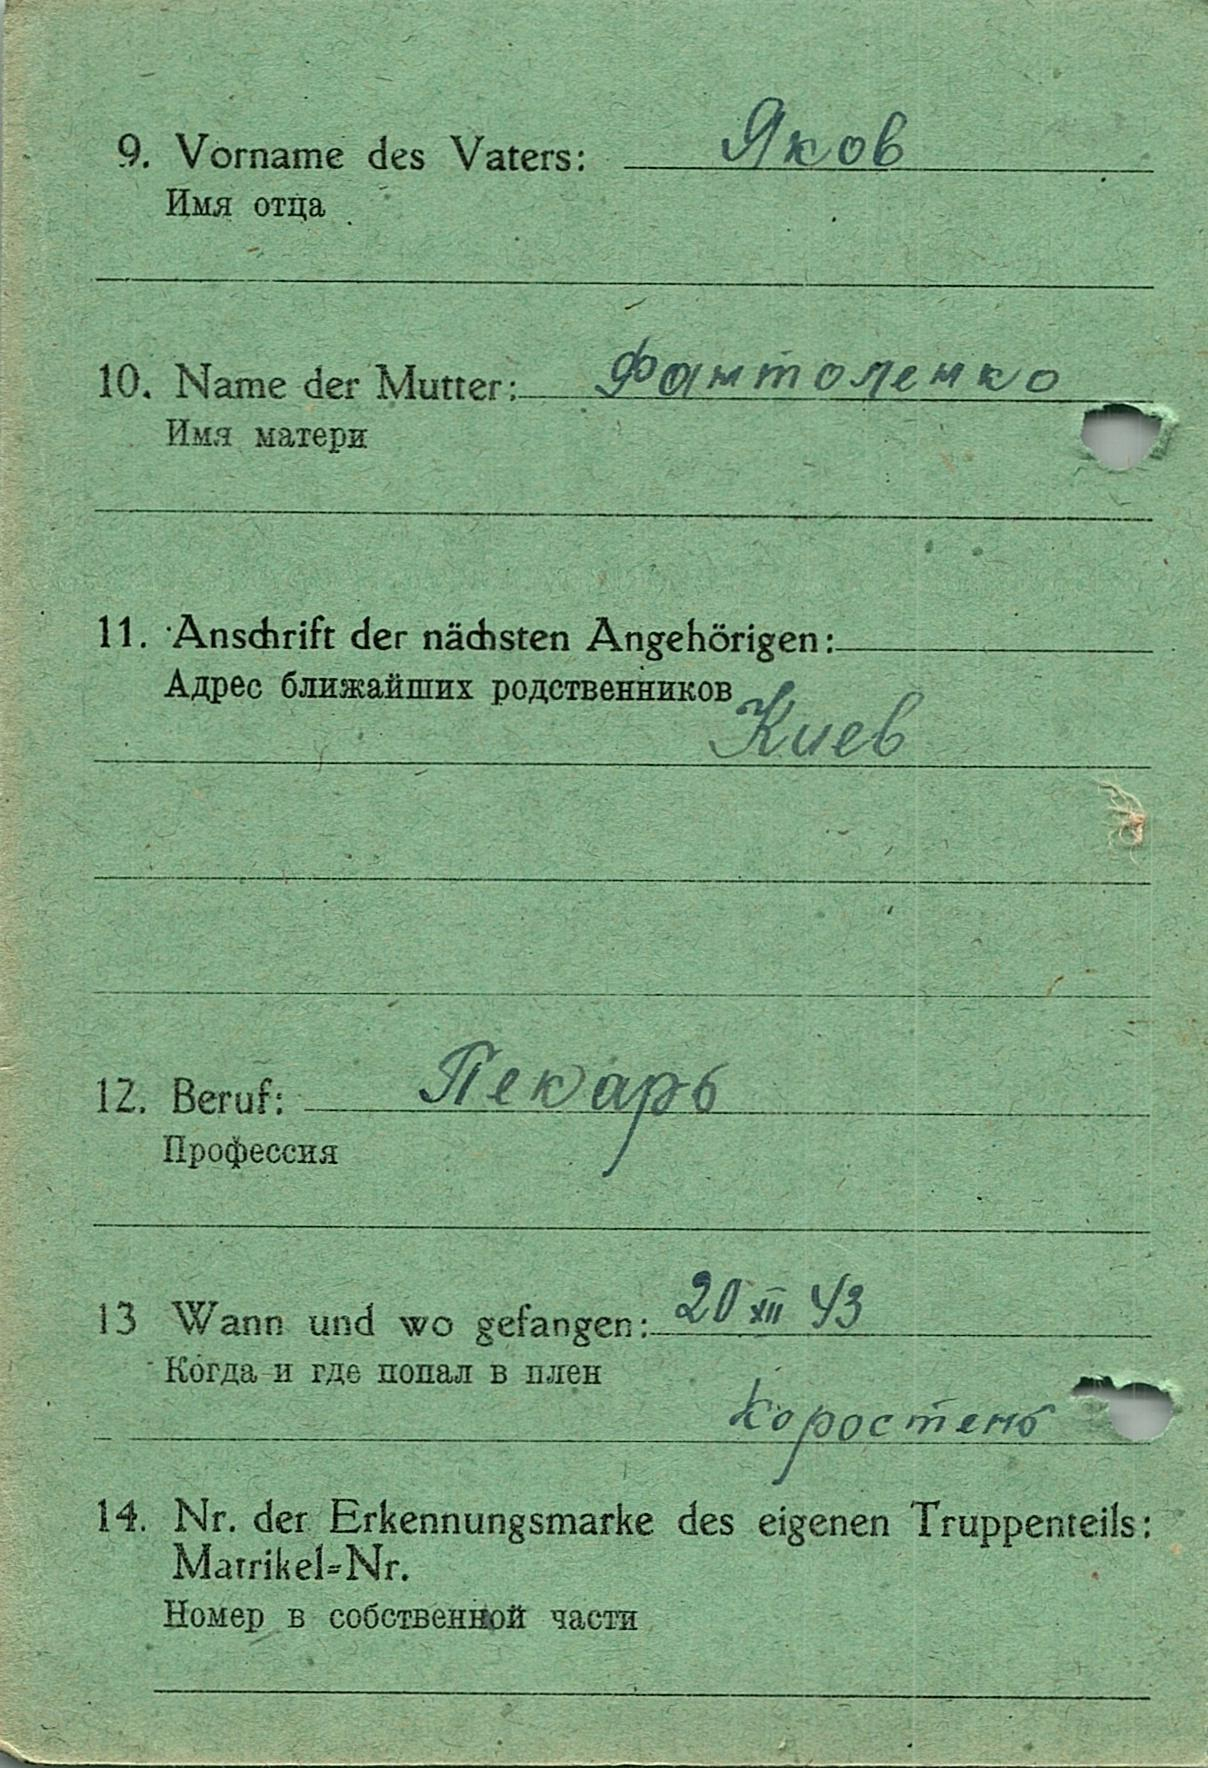 9. Vorname des Vaters: Яков
Имя отца
10. Name der Mutter: Фантоленко
Имя матери
11. Anschrift der nächsten Angehörigen:
Адрес ближайших родственников
Киев
12. Beruf: Пекарь
Профессия
13 Wann und wo gefangen: 20 XII 43
Когда и где попал в плен
Коростень
14. Nr. der Erkennungsmarke des eigenen Truppenteils:
Matrikel=Nr.
Номер в собственной части